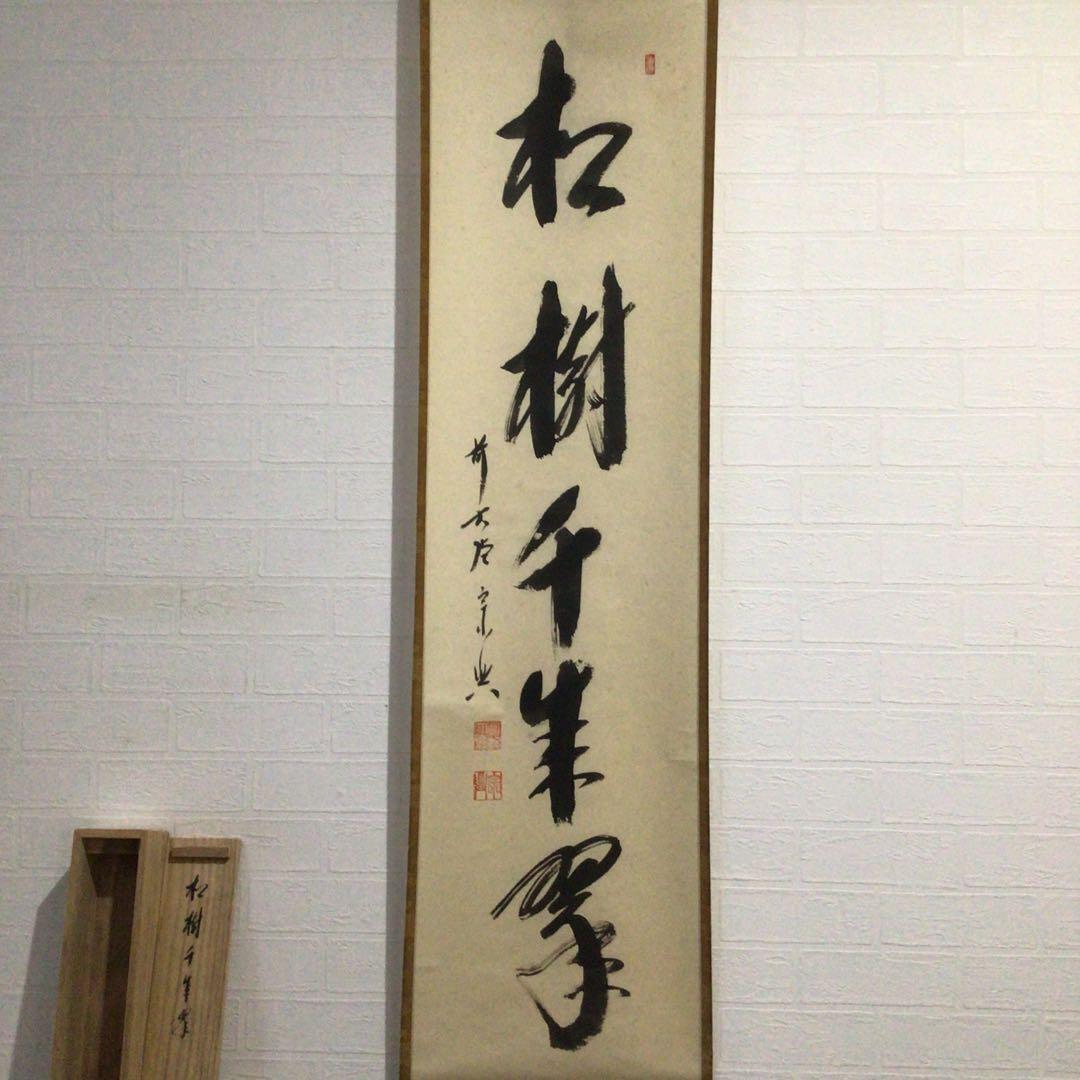 松樹千年翠
前大徳宗興
松樹千年翠